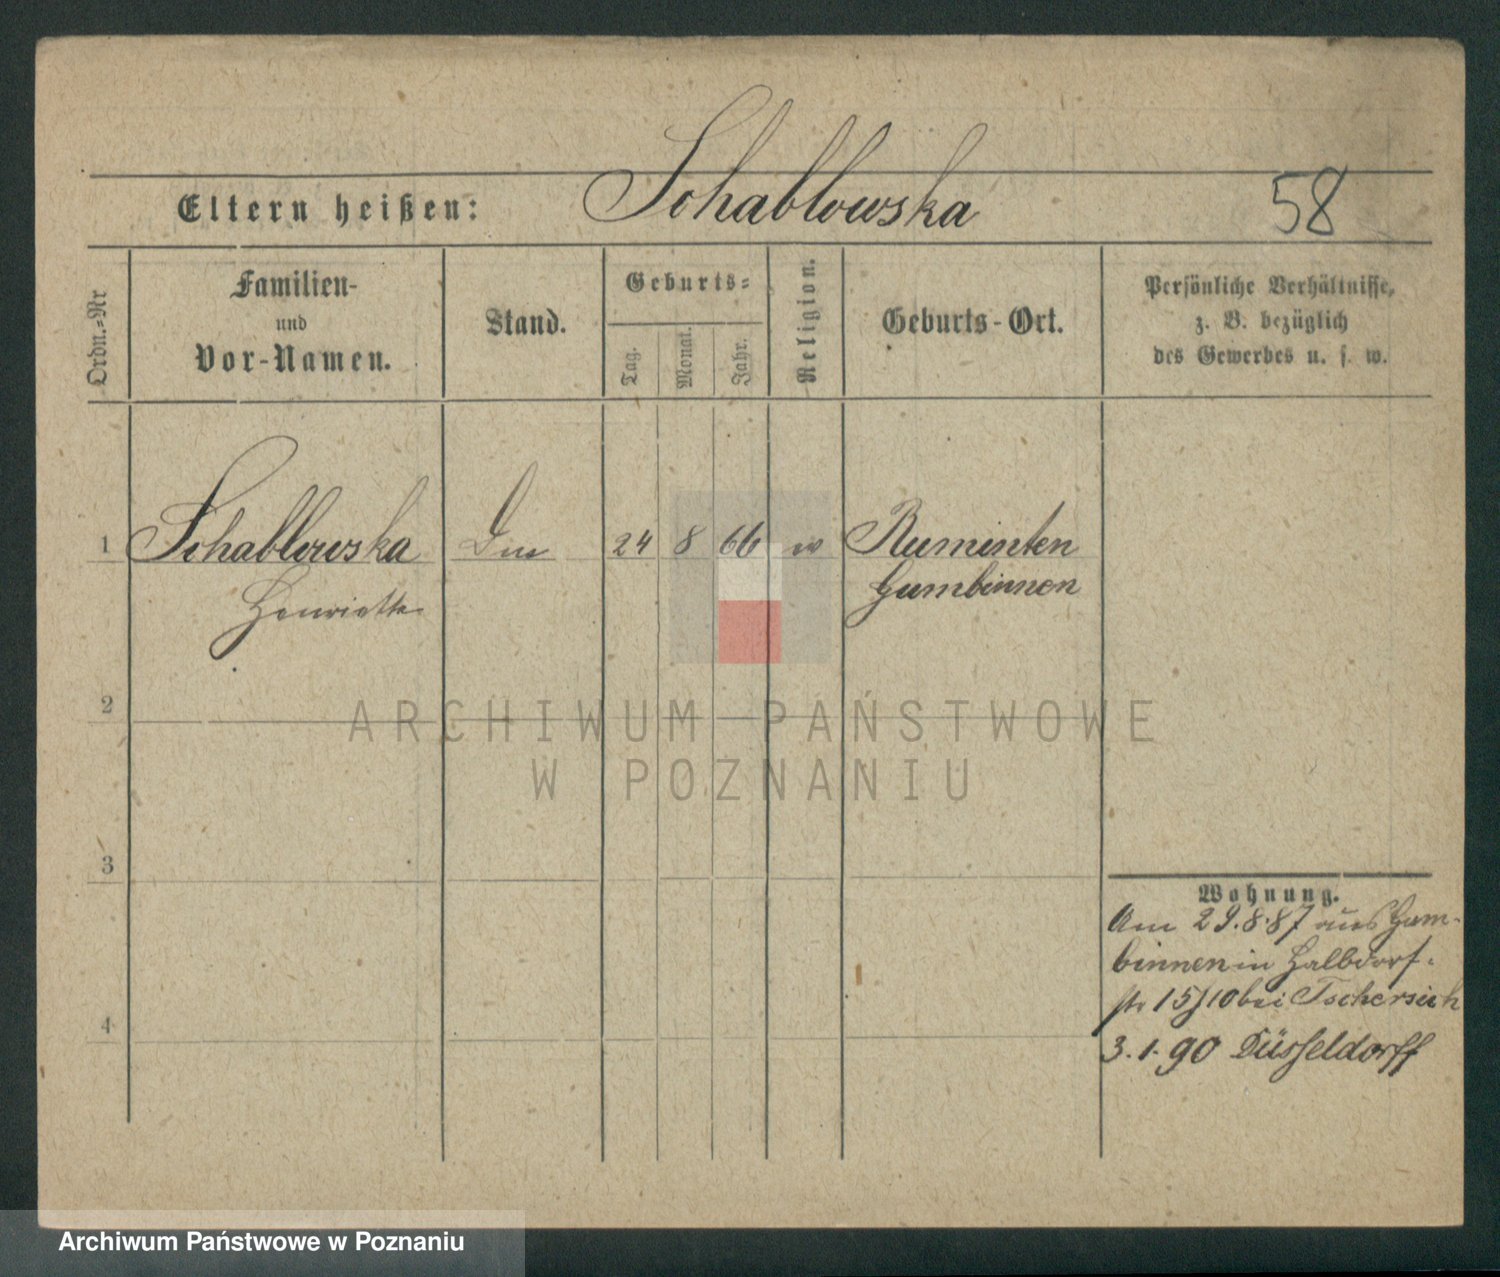 Eltern heißen: Schablowska 58
Ordn.-Nr
Familien-
und
Vor-Namen.
Stand.
Geburts-
Tag.
Monat.
Jahr.
Religion.
Geburts-Ort.
Persönliche Verhältnisse,
z. B. bezüglich
des Gewerbes u. s. w.
1 Schablowska 24 8 66 Ruminten
Henriette Gumbinnen
2
3
4
Wohnung.
Am 29.8.87 aus Gum-
binnen in Halbdorf-
str 15/10 bei Tschersich
3.1.90 Düsseldorff
ARCHIWUM PAŃSTWOWE
W POZNANIU
Archiwum Państwowe w Poznaniu